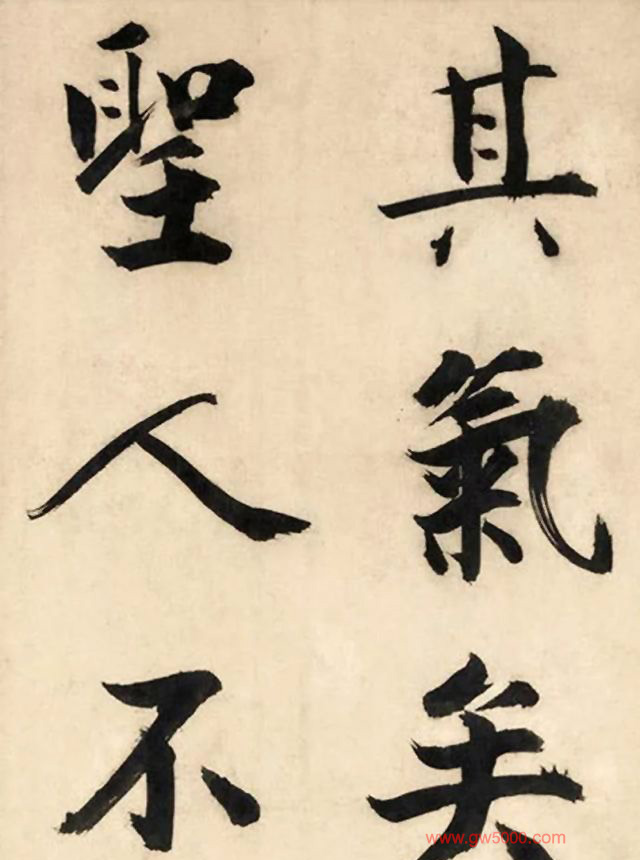 其氣矣
聖人不
www.gw5000.com